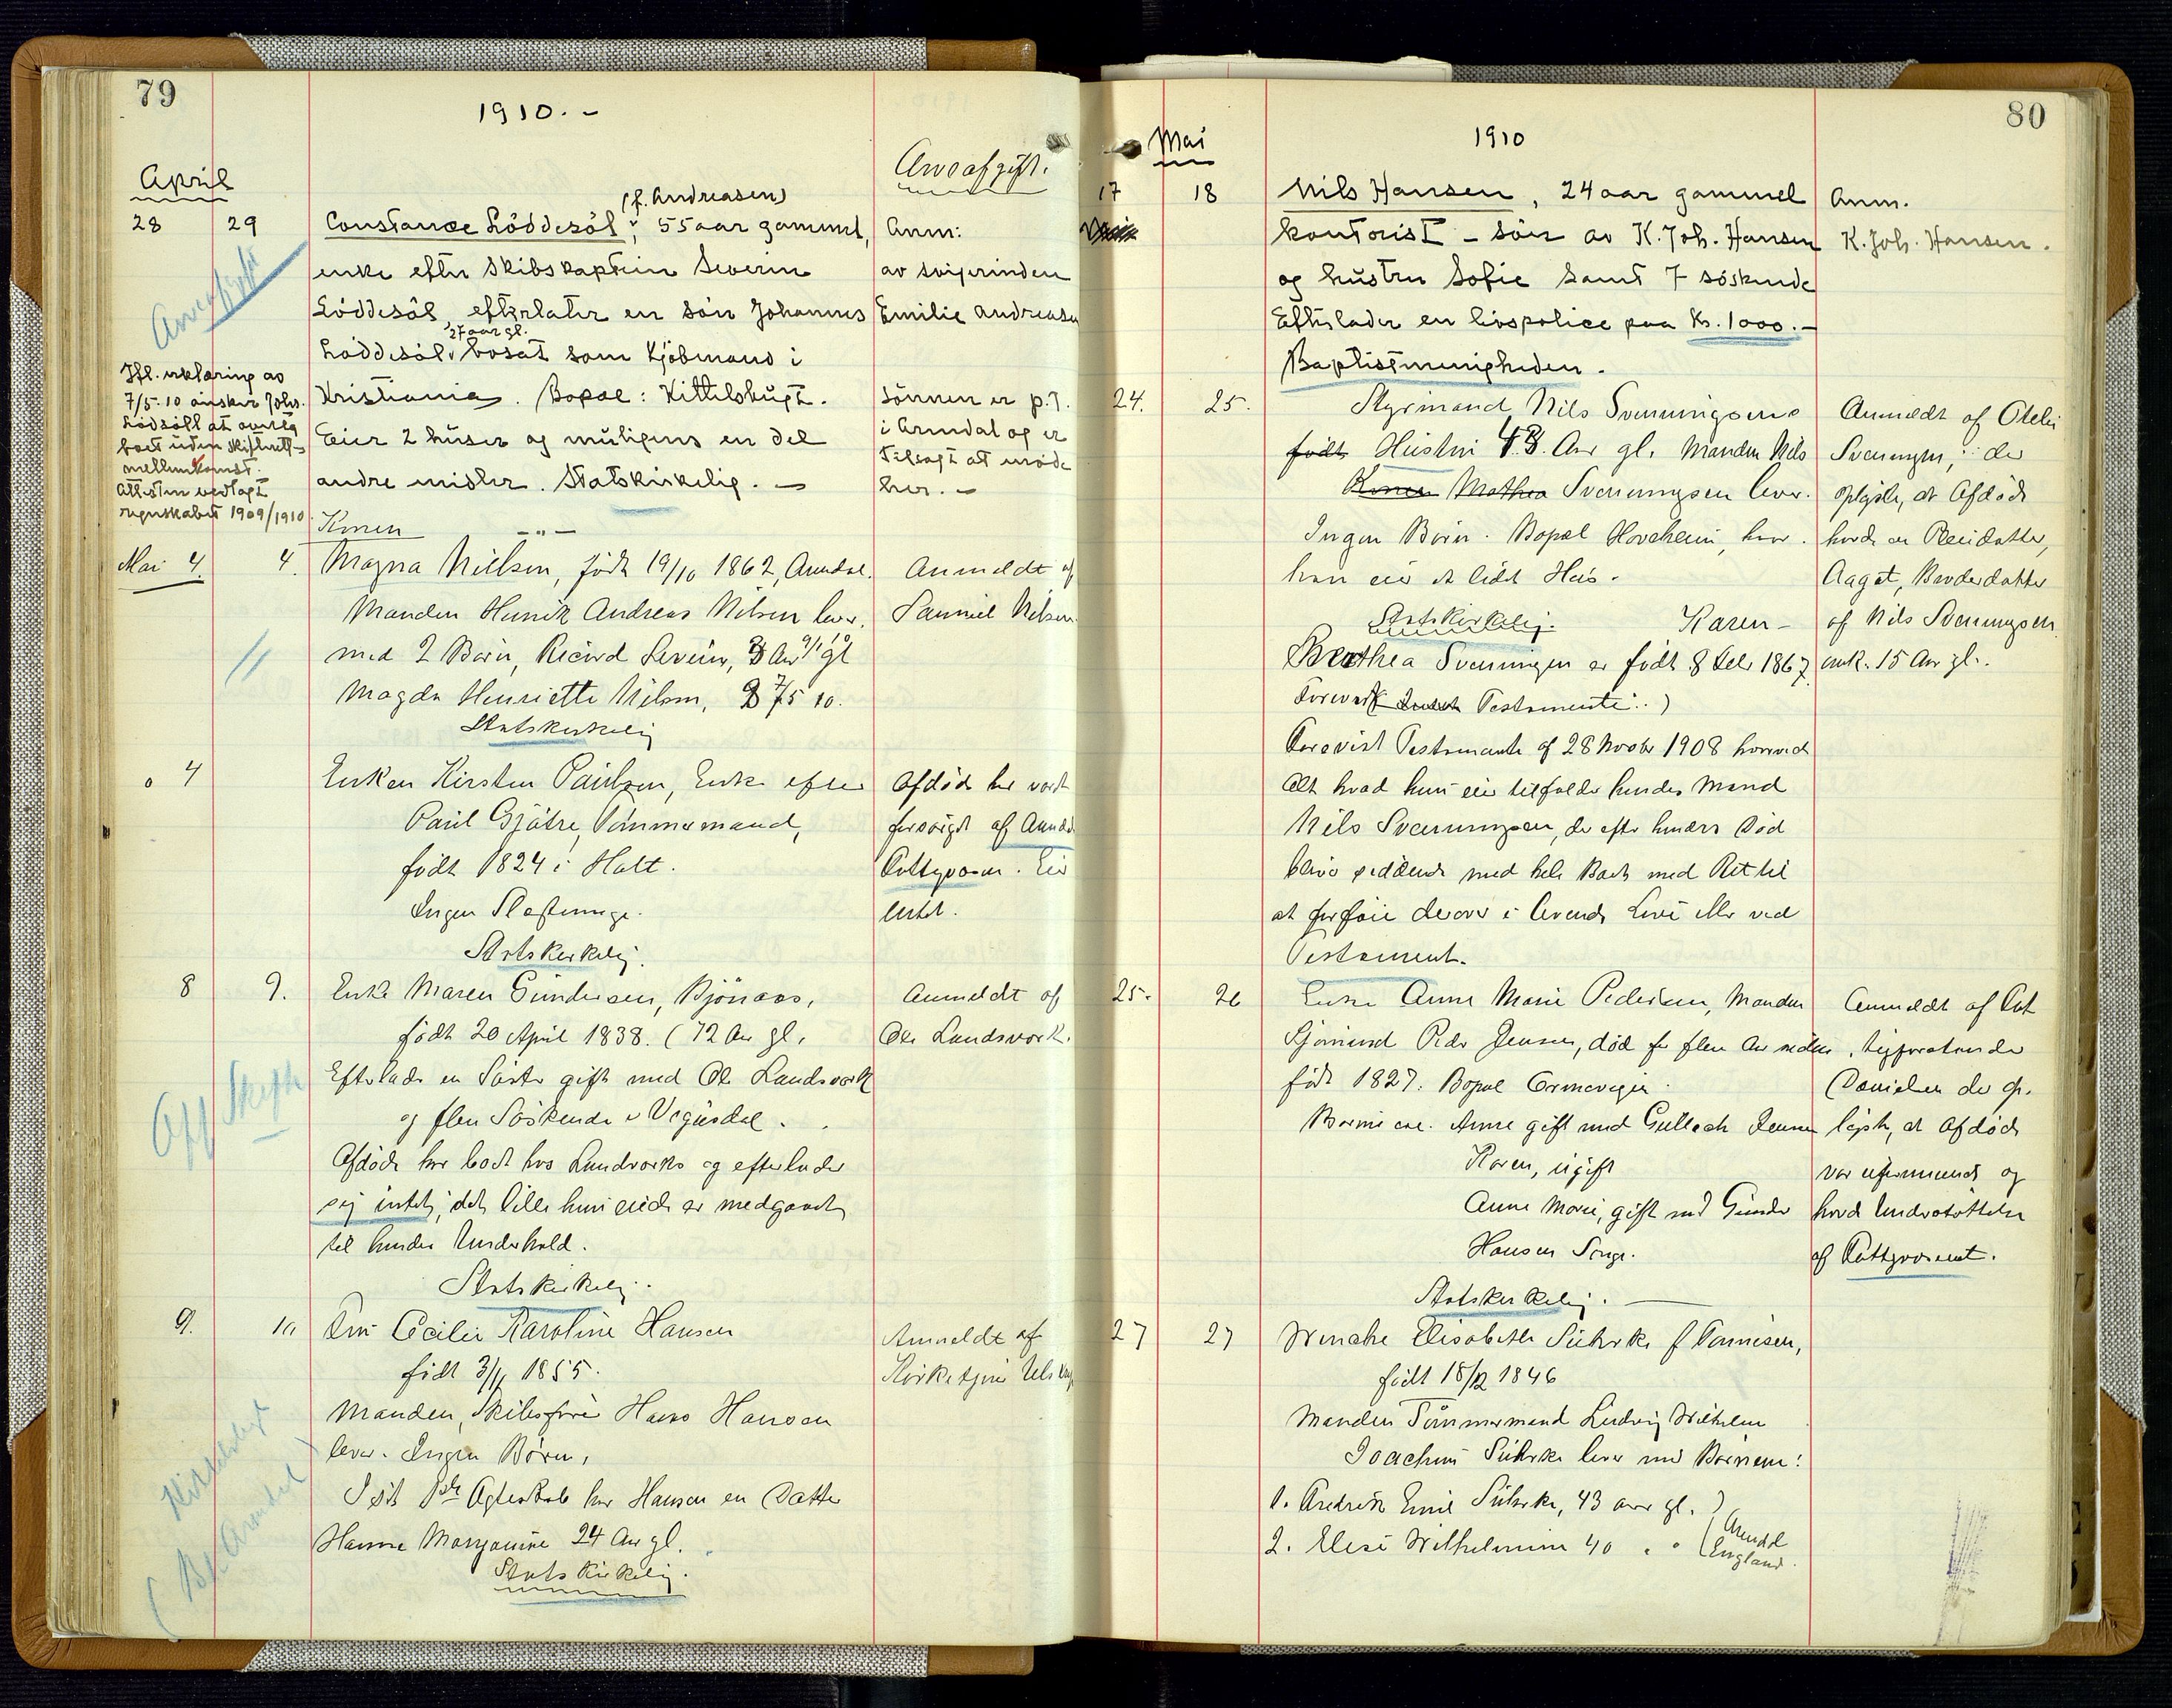 79
1910. -
Arveafgift.
April
(f. Andreasen)
28 29 Constance Löddesöl, 55 aar gammel, Anm:
enke efter Skibskaptein Severin av svigerinden
Löddesöl, efterlater en sön Johannes Emilie Andreasen
Arveafgift
27 aar gl.
Löddesöl bosat som Kjöbmand i
Kristiania. Bopæl: Kittelsbugt. Sönnen er p.t.
Eier 2 huser og muligens en del i Arendal og er
tilsagt at möde
andre midler. Statskirkelig. - her. -
Ifl. erklæring av
7/5-10 önsker Johs.
Löddesöll at overta
boet uden skifteretts-
mellemkomst.
Attesten vedlagt
regnskabet 1909/1910
Konen -"-
Mai 4. 4. Magna Nielsen, født 19/10 1862, Arendal. Anmeldt af
Manden Henrik Andreas Nilsen lever. Samuel Nilsen.
med 2 Børn, Ricard Severin, gl
Magda Henriette Nilsen, 7/5 10.
Statskirkelig
o 4 Enken Kirsten Paulsen, Enke efter Afdøde har været
Paul Gjätre, Tømmermand, forsørget af Arendal
født 1824 i Holt. Fattigvæsen. Eier
Ingen Slægtninge. intet.
Statskirkelig.
8 9. Enke Maren Gundersen, Bjönaas, Anmeldt af
født 20 April 1838. (72 Aar gl. Ole Landsverk.
Efterlader en Søster gift med Ole Landsverk
Off Skifte
og flere Søskende i Vegusdal.
Afdøde har boet hos Landsverks og efterlader
sig intet, det lille hun eiede er medgaaet
til hendes Underhold.
Statskirkelig.
9. 10 Fru Cecilie Karoline Hansen Anmeldt af
født 3/11 1855. Kirketjener
Manden, Skibsfører Hans Hansen
lever. Ingen Børn.
I sit 1ste Ægteskab har Hansen en Datter
Hanna Marganine 24 Aar gl.
Statskirkelig.
80
1910
Mai
17 18 Nils Hansen, 24 aar gammel Anm.
kontorist - sön av K. Joh. Hansen K. Joh. Hansen.
og hustru Sofie samt 7 söskende
Efterlader en livspolice paa Kr. 1000.-
Baptistmenigheden.
24. 25. Styrmand Nils Svenningsens Anmeldt af Otelie
født Hustru 43 Aar gl. Manden Nils Svenningsen, der
Konen Mathea Svenningsen lever. oplyste, at Afdøde
Ingen Børn. Bopæl Hovekeim, hvor havde en Pleiedatter,
han eier et lidet Hus. Aagot, Broderdatter
Statskirkelig. Karen - af Nils Svenningsen
Berthea Svenningsen er født 8 Febr 1867 omk. 15 Aar gl.
Forevist Testamente.)
Forevist Testamente af 28 Novbr 1908 hvorved
Alt hvad hun eier tilfalder hendes Mand
Nils Svenningsen, der efter hendes Død
bliver siddende med hele Boet med Ret til
at forføie derover i levende Live eller ved
Testament.
25. 26 Enke Anne Marie Pedersen, Manden Anmeldt af Fat
Sjømand Peder Jensen, død for flere Aar siden. tigforstander
født 1827. Bopæl Ormevegen. Danielsen der op-
Børnene ere. Anne gift med Gulleck Jensen lyste, at Afdøde
Karen, ugift var uformuende og
Anne Marie, gift med Gunder havde Understøttelse
Hansen Songe. af Fattigvæsenet.
Statskirkelig.
27 27 Wencke Elisabeth Suhrke f Tønnesen,
født 18/12 1846
Manden Tømmermand Ludvig Wilhelm
Joachim Suhrke lever med Børnene:
1. Fredrik Emil Suhrke, 43 aar gl. ) Arendal
2. Elise Wilhelmine 40 " " (England.